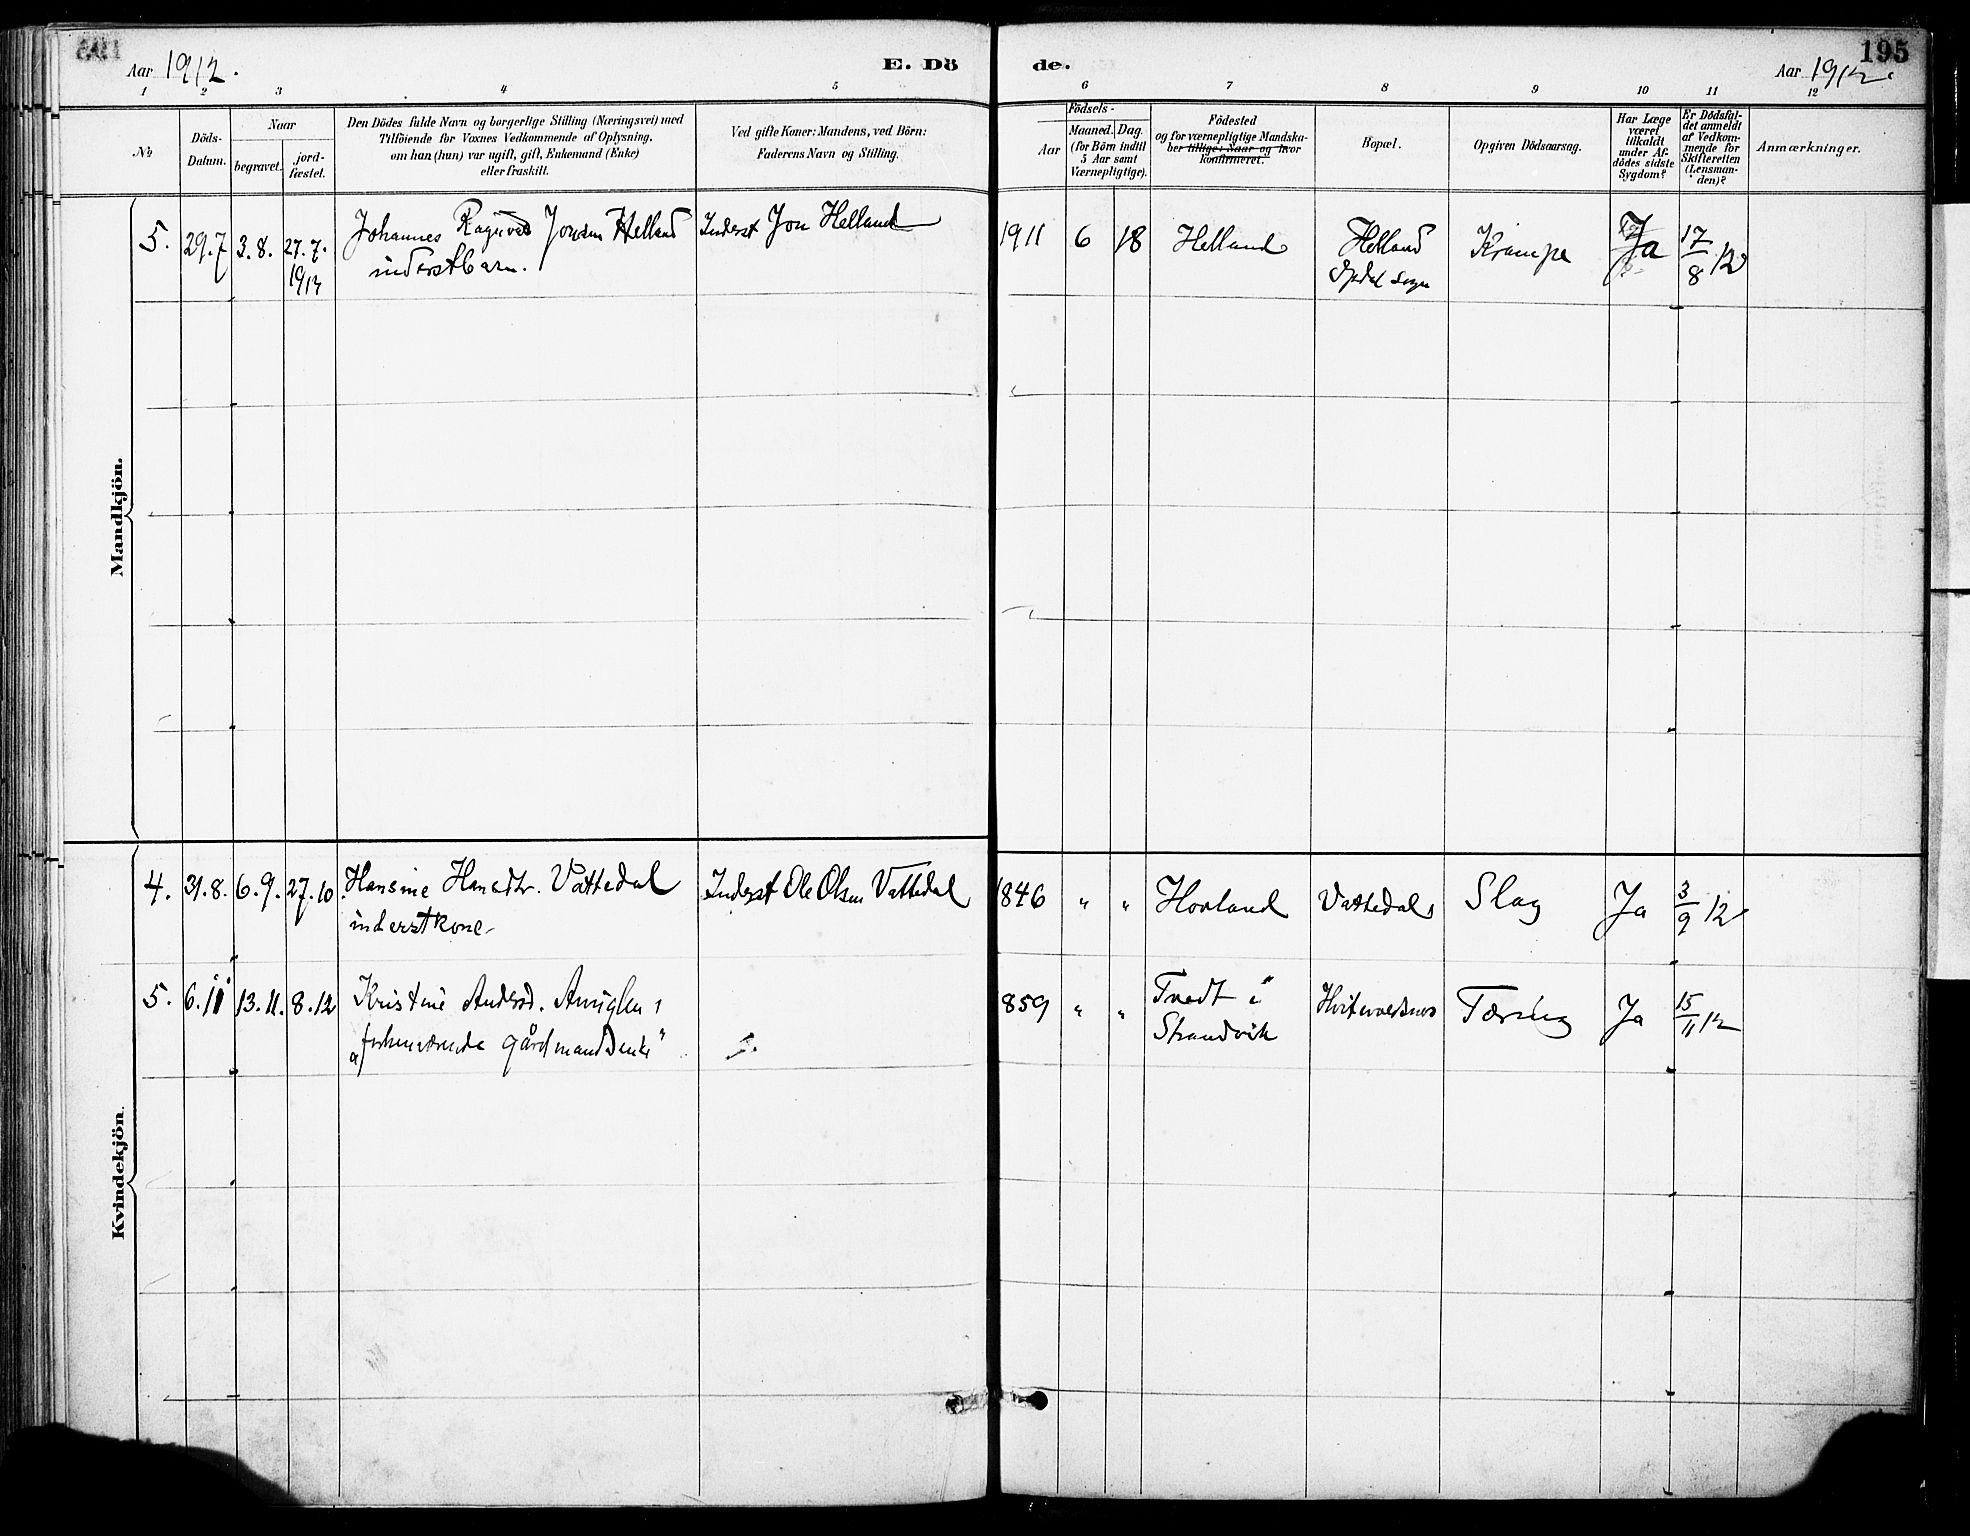 Aar 1912.
E. Dö
de.
Aar 1912.
195
1 2 3 4 5 6 7 8 9 10 11 12
No
Döds-
Datum.
Naar
begravet.
jord-
fæstet.
Den Dödes fulde Navn og borgerlige Stilling (Næringsvei) med
Tilföiende for Voxnes Vedkommende af Oplysning,
om han (hun) var ugift, gift, Enkemand (Enke)
eller fraskilt.
Ved gifte Koner: Mandens, ved Börn:
Faderens Navn og Stilling.
Födsels-
Aar
Maaned. Dag.
(for Börn indtil
5 Aar samt
Værnepligtige).
Födested
og for værnepligtige Mandska-
ber tillige: Naar og hvor
konfirmeret.
Bopæl.
Opgiven Dödsaarsag.
Har Læge
været
tilkaldt
under Af-
dödes sidste
Sygdom?
Er Dödsfal-
det anmeldt
af Vedkom-
mende for
Skifteretten
(Lensman-
den)?
Anmærkninger.
Mandkjön.
5. 29.7 3.8. 27.7. Johannes Ragnvald Jonsen Helland Inderst Jon Helland 1911 6 18 Helland Helland Krampe Ja 17/8 12
1913 inderstbarn. Opdal sogn
Kvindekjön.
4. 31.8. 6.9. 27.10. Hansine Hansdtr. Vattedal Inderst Ole Olsen Vattedal 1846 " " Hovland Vattedal Slag Ja 3/9 12
inderstkone
5. 6.11 13.11. 8.12 Kristine Andersd. 859 " " Tvedt i Tæring Ja 15/11 12
"forhenværende gårdmandsenke" Strandvik